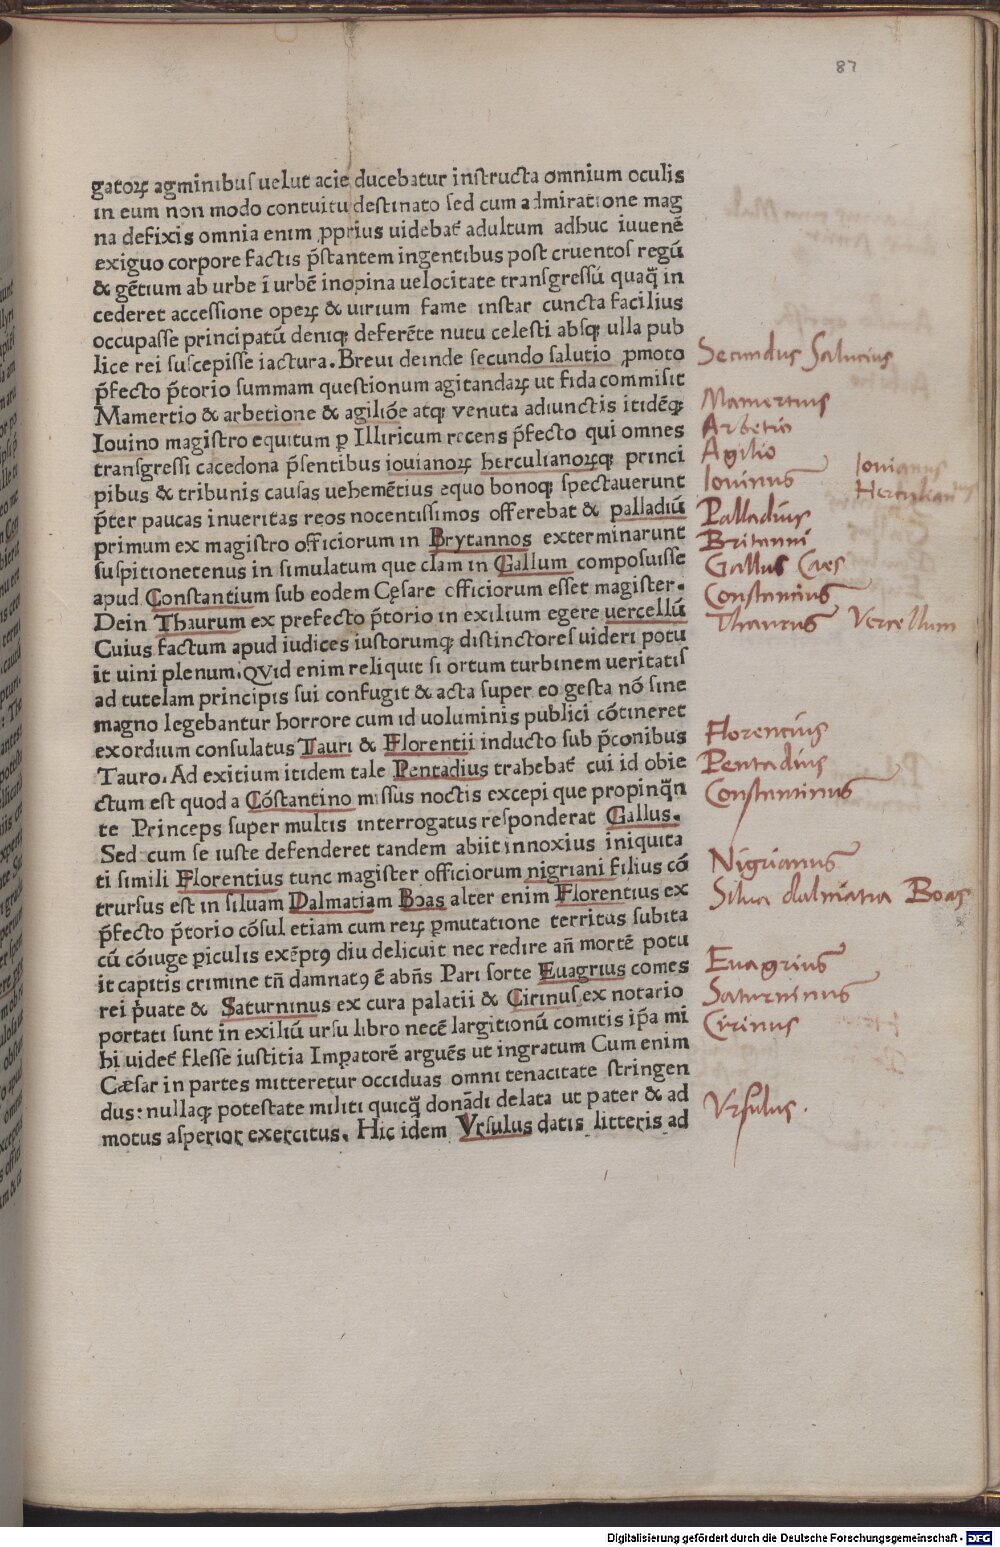 87
gatoꝝ agminibus uelut acie ducebatur instructa omnium oculis
in eum non modo contuitu destinato sed cum admiratione mag
na defixis omnia enim ꝓprius uidebat̃ adultum adhuc iuuenẽ
exiguo corpore factis p̃stantem ingentibus post cruentos regũ
& gẽtium ab urbe ĩ urbẽ inopina uelocitate transgressũ quaq̃ in
cederet accessione opeꝝ & uirium fame instar cuncta facilius
occupasse principatũ deniqꝫ deferẽte nutu celesti absqꝫ ulla pub
lice rei suscepisse iactura. Breui deinde secundo salutio ꝓmoto
p̃fecto p̃torio summam questionum agitandaꝝ ut fida commisit
Mamertio & arbetione & agiliõe atqꝫ venuta adiunctis itidẽqꝫ
Iouino magistro equitum ꝑ Illiricum recens p̃fecto qui omnes
transgressi cacedona p̃sentibus iouianoꝝ herculianoꝝqꝫ princi
pibus & tribunis causas uehemẽtius equo bonoqꝫ spectauerunt
p̃ter paucas in ueritas reos nocentissimos offerebat & palladiũ
primum ex magistro officiorum in Brytannos exterminarunt
suspitionetenus in simulatum que clam in Gallum composuisse
apud Constantium sub eodem Cęsare officiorum esset magister.
Dein Thaurum ex prefecto p̃torio in exilium egere uercellũ
Cuius factum apud iudices iustorumqꝫ distinctores uideri potu
it uini plenum. QVid enim reliquit si ortum turbinem ueritatis
ad tutelam principis sui confugit & acta super eo gesta nõ sine
magno legebantur horrore cum id uoluminis publici cõtineret
exordium consulatus Tauri & Florentii inducto sub p̃conibus
Tauro. Ad exitium itidem tale Pentadius trahebat̃ cui id obie
ctum est quod a Cõstantino missus noctis excepi que propinq̃n
te Princeps super multis interrogatus responderat Gallus.
Sed cum se iuste defenderet tandem abiit innoxius iniquita
ti simili Florentius tunc magister officiorum nigriani filius cõ
trursus est in siluam Dalmatiam Boas alter enim Florentius ex
p̃fecto p̃torio cõsul etiam cum reiꝝ ꝑmutatione territus subita
cũ cõiuge ꝑiculis exẽptꝯ diu delicuit nec redire añ mortẽ potu
it capitis crimine tñ damnatꝯ ẽ abñs Pari sorte Euagrius comes
rei p̃uate & Saturninus ex cura palatii & Cirinus ex notario
portati sunt in exiliũ ursu libro necẽ largitionũ comitis ip̃a mi
hi uidet̃ flesse iustitia Impatorẽ arguẽs ut ingratum Cum enim
Cæsar in partes mitteretur occiduas omni tenacitate stringen
dus: nullaqꝫ potestate militi quicq̃ donãdi delata ut pater & ad
motus asperior exercitus. Hic idem Vrsulus datis litteris ad
Secundus Salucius
Mamertius
Arbetio
Agilio
Iouinus
Iouianus
Herculian9
Palladius
Britanni
Gallus Caes
Constancius
Thaurus Vercellum
Florencius
Pentadius
Constantinus
Nigrianus
Silua dalmatia Boas
Euagrius
Saturninus
Cirinus
Vrsulus.
Digitalisierung gefördert durch die Deutsche Forschungsgemeinschaft - DFG